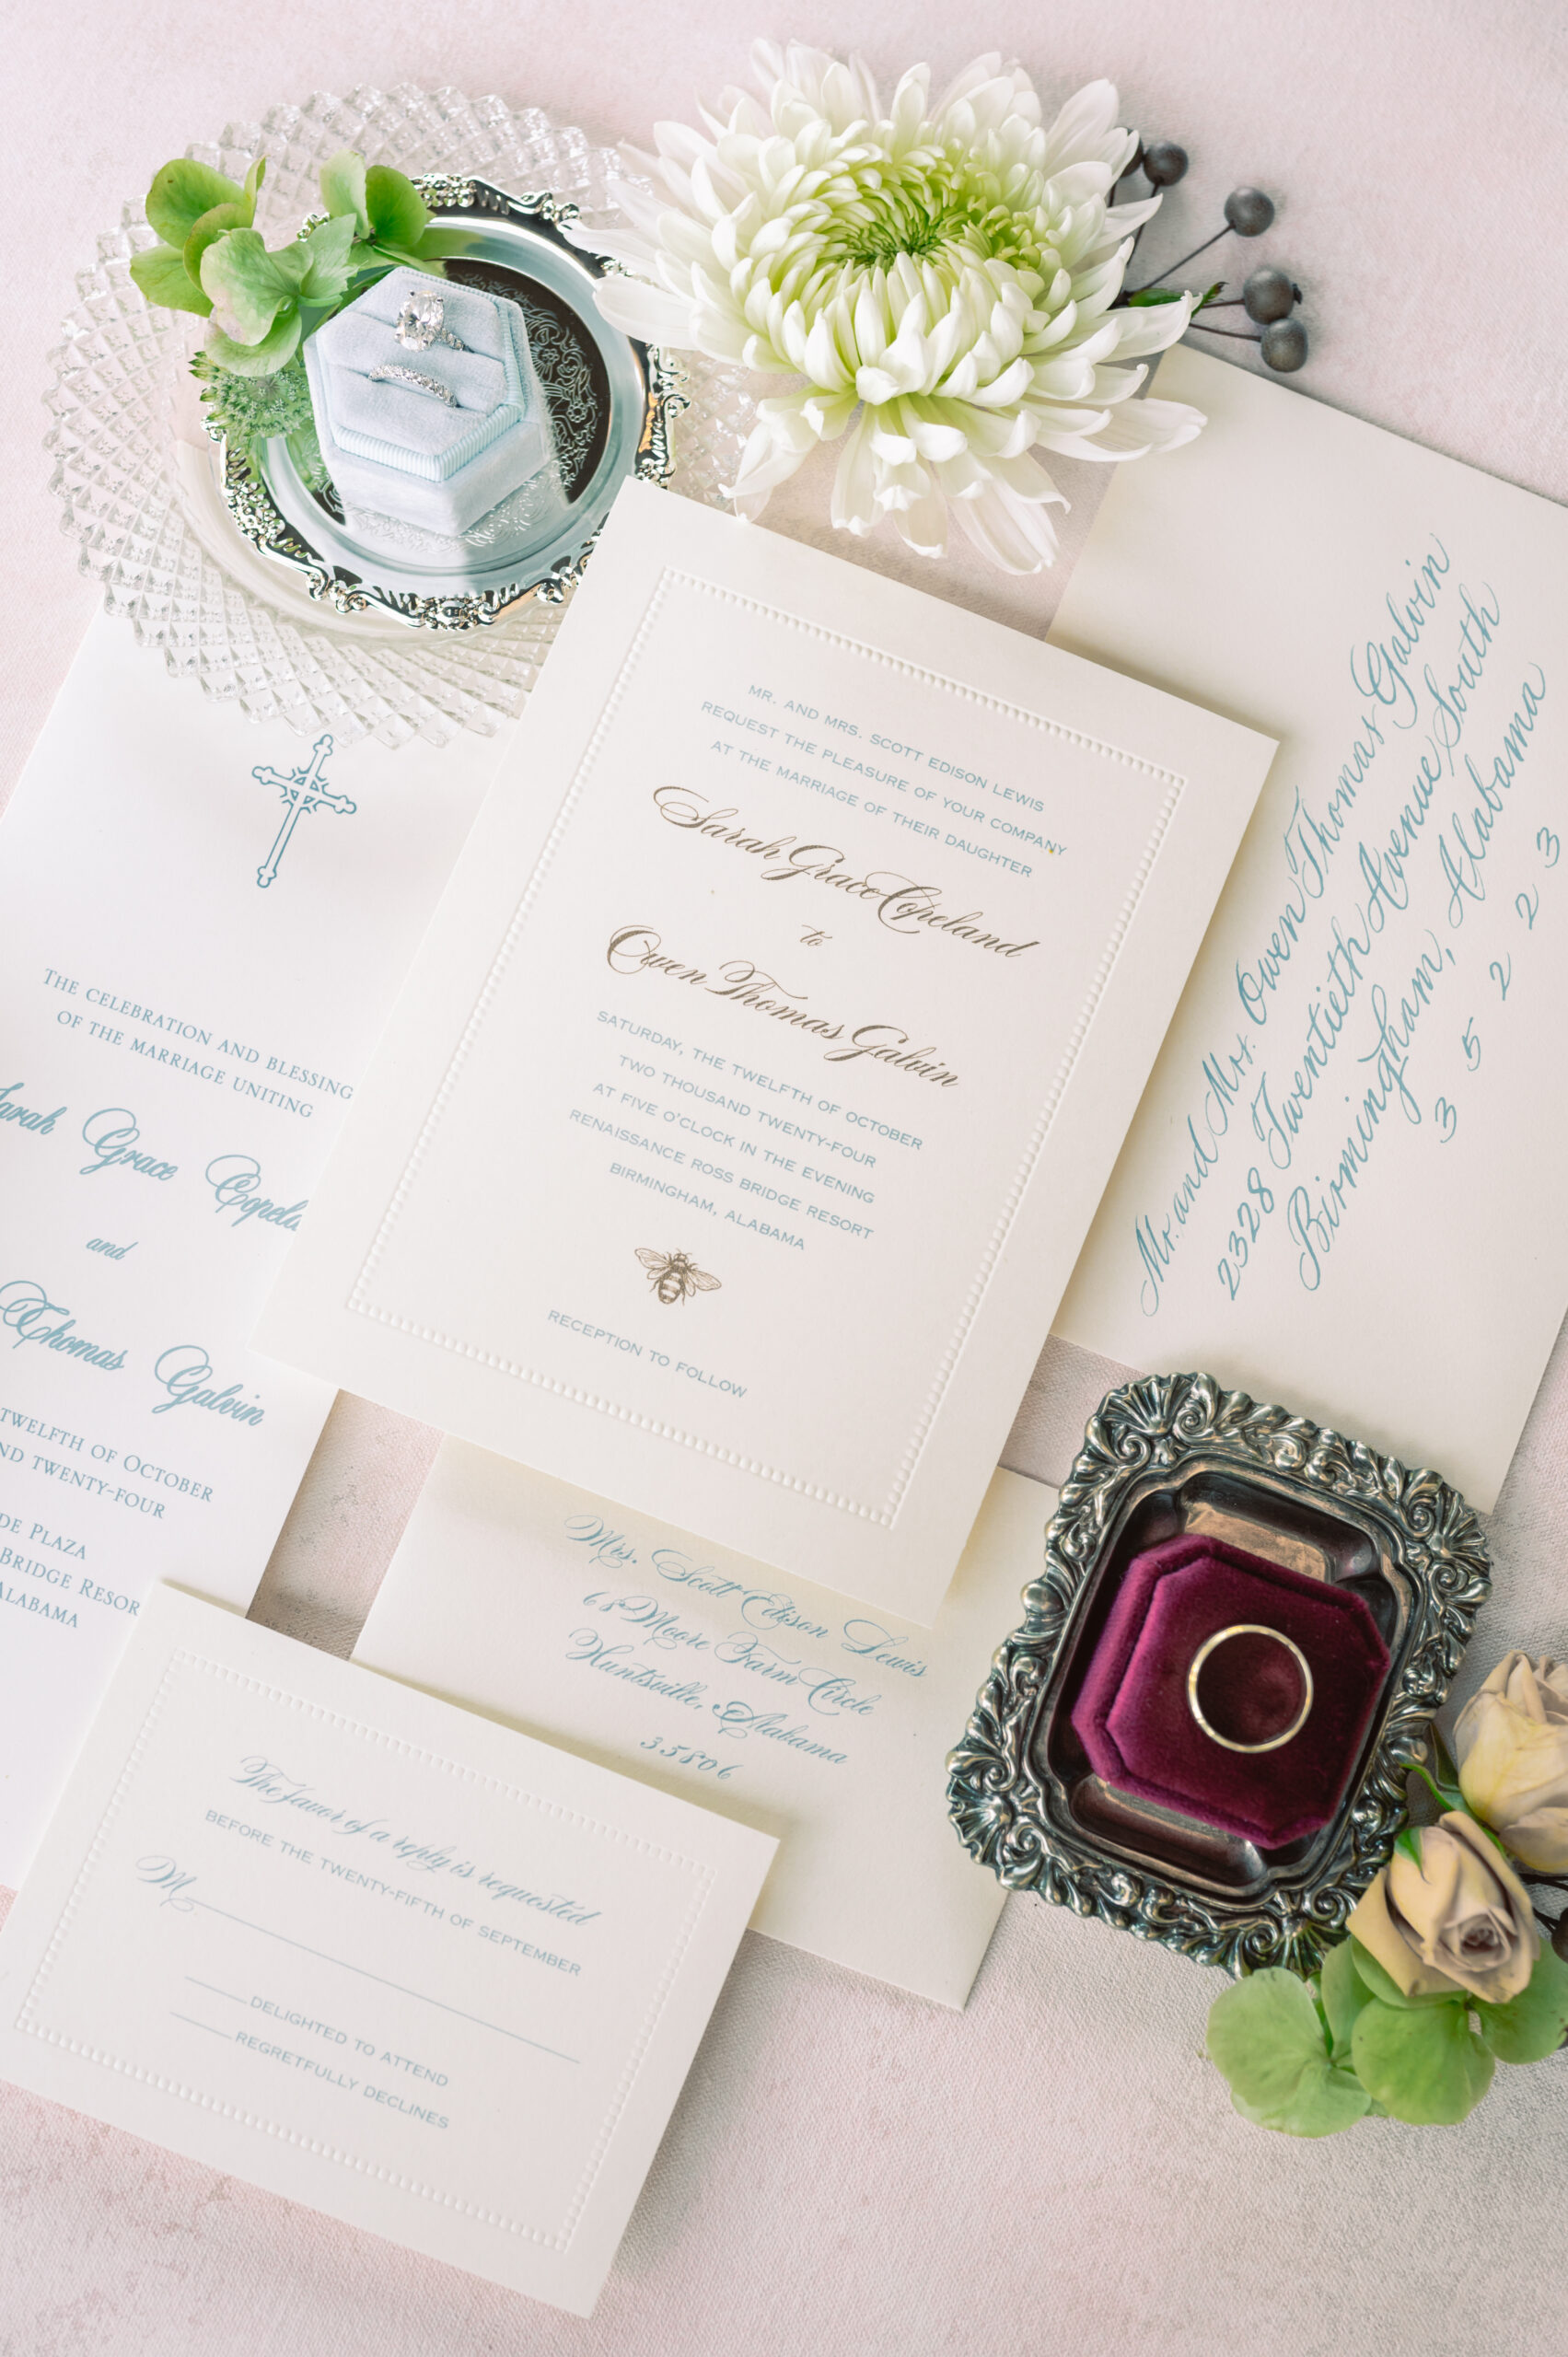 MR. AND MRS. SCOTT EDISON LEWIS
REQUEST THE PLEASURE OF YOUR COMPANY
AT THE MARRIAGE OF THEIR DAUGHTER
Sarah Grace Copeland
to
Owen Thomas Galvin
SATURDAY, THE TWELFTH OF OCTOBER
TWO THOUSAND TWENTY-FOUR
AT FIVE O'CLOCK IN THE EVENING
RENAISSANCE ROSS BRIDGE RESORT
BIRMINGHAM, ALABAMA
RECEPTION TO FOLLOW
Mr. and Mrs. Owen Thomas Galvin
2328 Twentieth Avenue South
Birmingham, Alabama
35223
THE CELEBRATION AND BLESSING
OF THE MARRIAGE UNITING
Sarah Grace
and
Thomas Galvin
TWELFTH OF OCTOBER
TWENTY-FOUR
PLAZA
BRIDGE
ALABAMA
Mrs. Scott Edison Lewis
68 Moore Farm Circle
Huntsville, Alabama
35806
The favor of a reply is requested
BEFORE THE TWENTY-FIFTH OF SEPTEMBER
M
DELIGHTED TO ATTEND
REGRETFULLY DECLINES